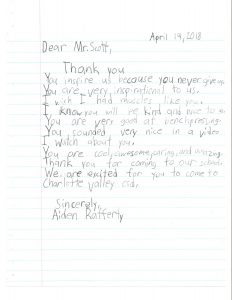 April 19, 2018
Dear Mr. Scott,
Thank you
You inspire us because you never give up.
You are very inspirational to us.
I wich I had muscles like you.
I know you will be kind and nice to us.
You are very good at benchpresing.
You sounded very nice in a video
I watch about you.
You are cool, awesome, caring, and amazing.
Thank you for coming to our school.
We are exited for you to come to
Charlotte Valley csd.
Sincerely,
Aiden Rafferty